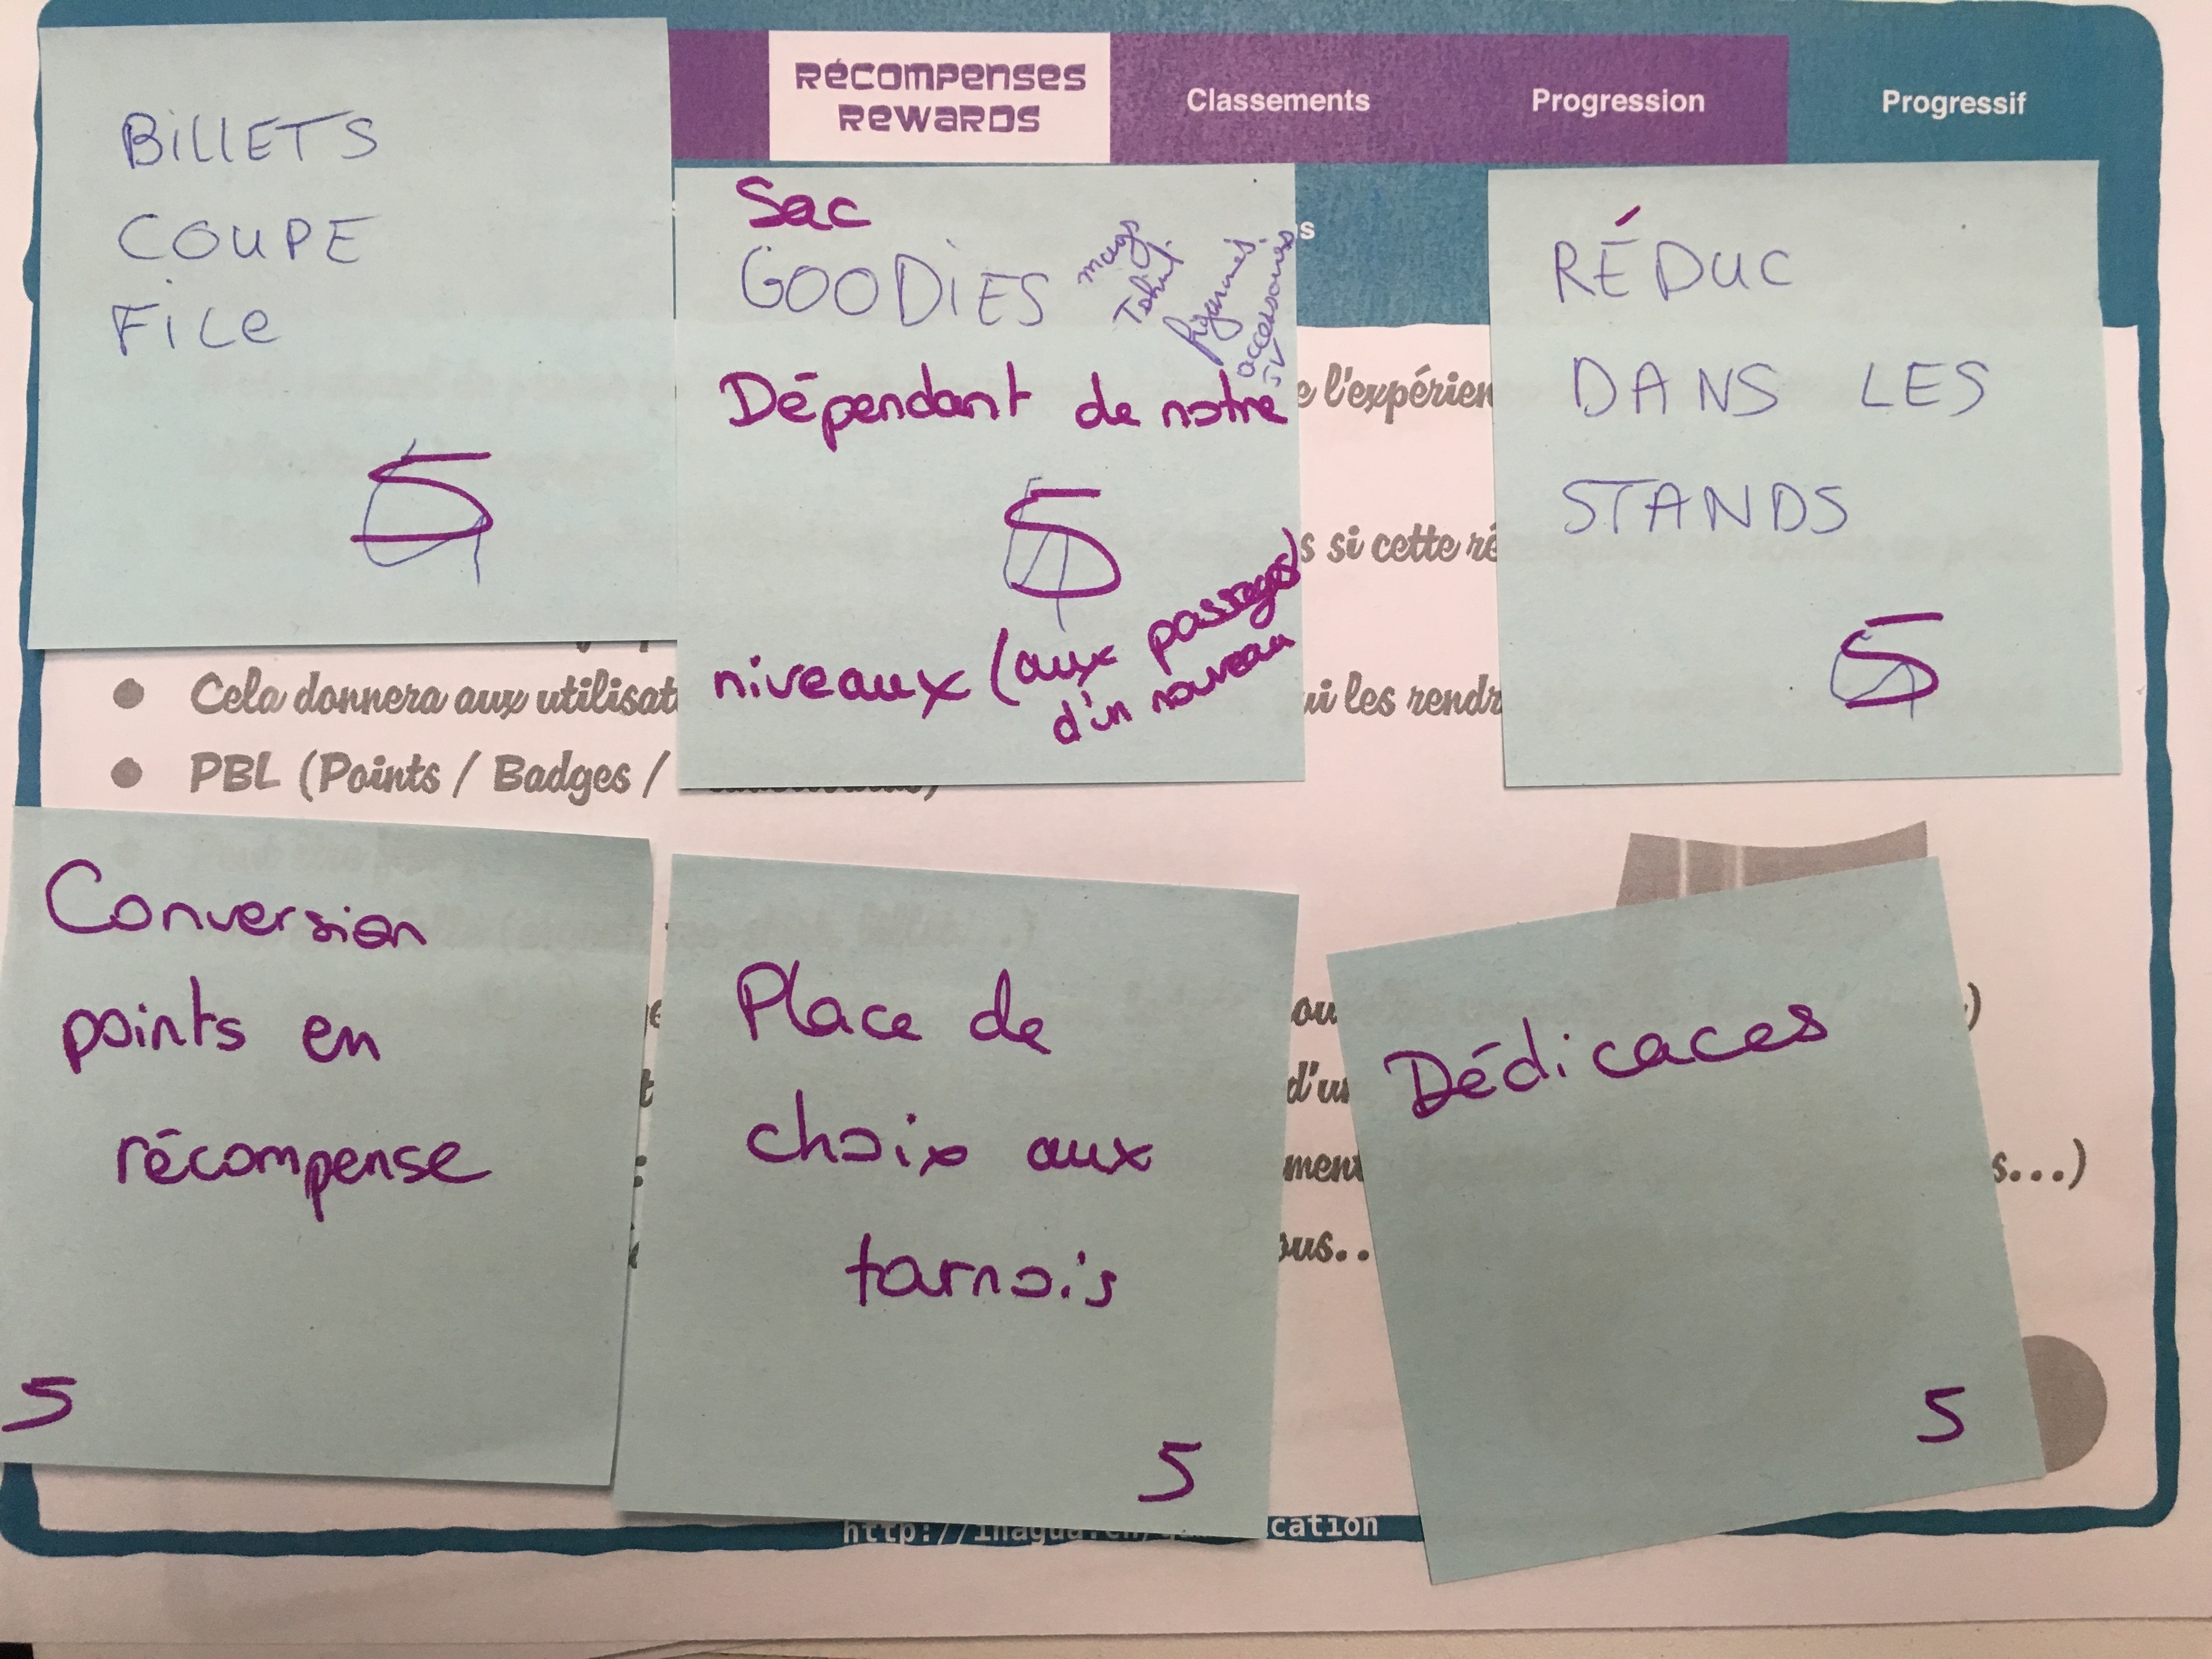 RÉCOMPENSES
REWARDS
Classements
Progression
Progressif
BILLETS
COUPE
FILE
5
Sac
GOODIES
mugs
Tshirt
figurines
accessoires
JV
Dépendant de notre
5
niveaux (aux passages)
d'un nouveau
RÉDUC
DANS LES
STANDS
5
s
e l'expérien
s si cette ré
Cela donnera aux utilisat
ui les rendr
PBL (Points / Badges /
Conversion
points en
récompense
5
Place de
choix aux
tarnois
5
Dédicaces
5
ou
)
d'u
ment
s...)
ous..
http://inagua.ch/
ication